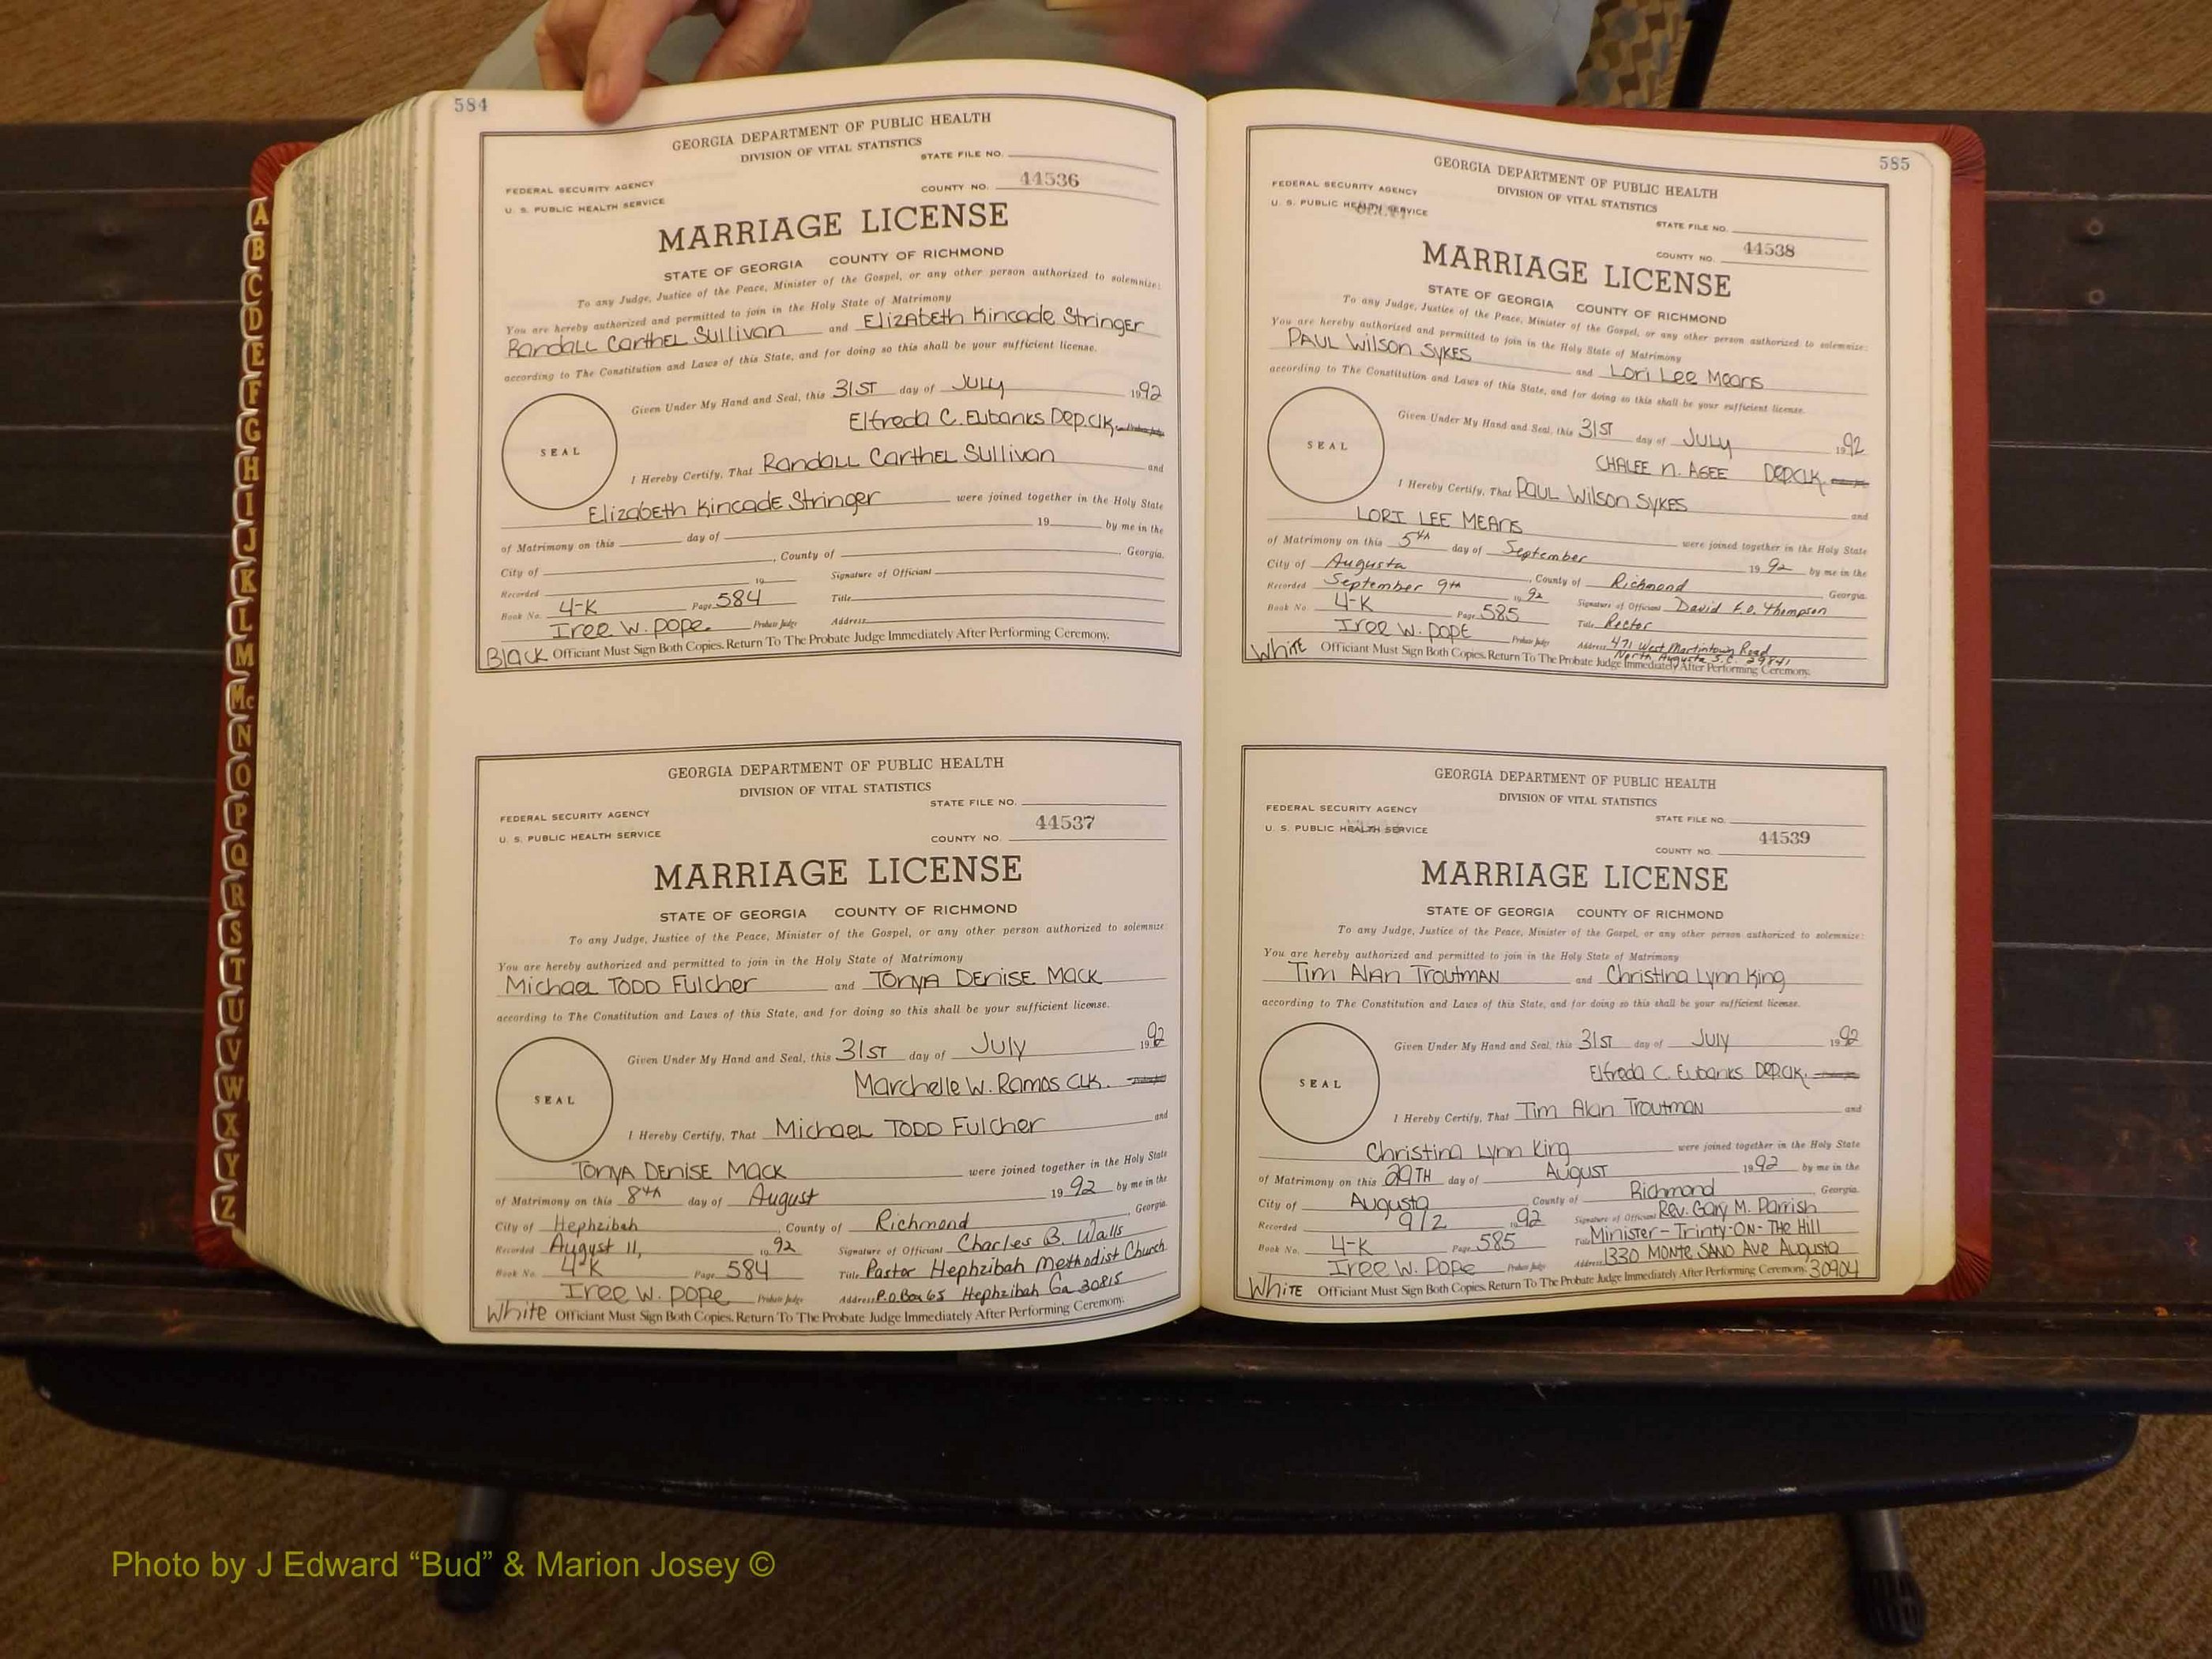 584
GEORGIA DEPARTMENT OF PUBLIC HEALTH
DIVISION OF VITAL STATISTICS
STATE FILE NO.
FEDERAL SECURITY AGENCY
U. S. PUBLIC HEALTH SERVICE
COUNTY NO. 44536
MARRIAGE LICENSE
STATE OF GEORGIA COUNTY OF RICHMOND
To any Judge, Justice of the Peace, Minister of the Gospel, or any other person authorized to solemnize:
You are hereby authorized and permitted to join in the Holy State of Matrimony
Randall Carthel Sullivan and Elizabeth Kincade Stringer
according to The Constitution and Laws of this State, and for doing so this shall be your sufficient license.
Given Under My Hand and Seal, this 31ST day of July 1992
Elfreda C. Eubanks Dep.Clk.
SEAL
I Hereby Certify, That Randall Carthel Sullivan and
Elizabeth Kincade Stringer were joined together in the Holy State
of Matrimony on this day of 19 by me in the
City of , County of Georgia.
Recorded 19 Signature of Officiant
Book No. 4-K Page 584 Title
Iree W. Pope Probate Judge Address
Black Officiant Must Sign Both Copies. Return To The Probate Judge Immediately After Performing Ceremony.
GEORGIA DEPARTMENT OF PUBLIC HEALTH
DIVISION OF VITAL STATISTICS
STATE FILE NO.
FEDERAL SECURITY AGENCY
U. S. PUBLIC HEALTH SERVICE
COUNTY NO. 44537
MARRIAGE LICENSE
STATE OF GEORGIA COUNTY OF RICHMOND
To any Judge, Justice of the Peace, Minister of the Gospel, or any other person authorized to solemnize:
You are hereby authorized and permitted to join in the Holy State of Matrimony
Michael Todd Fulcher and Tonya Denise Mack
according to The Constitution and Laws of this State, and for doing so this shall be your sufficient license.
Given Under My Hand and Seal, this 31ST day of July 1992
Marchelle W. Ramos Clk.
SEAL
I Hereby Certify, That Michael Todd Fulcher and
Tonya Denise Mack were joined together in the Holy State
of Matrimony on this 8th day of August 1992 by me in the
City of Hephzibah , County of Richmond , Georgia
Recorded August 11, 1992 Signature of Officiant Charles B. Walls
Book No. 4-K Page 584 Title Pastor Hephzibah Methodist Church
Iree W. Pope Probate Judge Address P.O. Box 65 Hephzibah Ga 30815
White Officiant Must Sign Both Copies. Return To The Probate Judge Immediately After Performing Ceremony.
585
GEORGIA DEPARTMENT OF PUBLIC HEALTH
DIVISION OF VITAL STATISTICS
STATE FILE NO.
FEDERAL SECURITY AGENCY
U. S. PUBLIC HEALTH SERVICE
COUNTY NO. 44538
MARRIAGE LICENSE
STATE OF GEORGIA COUNTY OF RICHMOND
To any Judge, Justice of the Peace, Minister of the Gospel, or any other person authorized to solemnize:
You are hereby authorized and permitted to join in the Holy State of Matrimony
Paul Wilson Sykes and Lori Lee Means
according to The Constitution and Laws of this State, and for doing so this shall be your sufficient license.
Given Under My Hand and Seal, this 31ST day of July 1992
Chalee N. Agee Dep.Clk.
SEAL
I Hereby Certify, That Paul Wilson Sykes and
Lori Lee Means were joined together in the Holy State
of Matrimony on this 5th day of September 1992 by me in the
City of Augusta , County of Richmond Georgia.
Recorded September 9th 1992 Signature of Officiant David F.O. Thompson
Book No 4-K Page 585 Title Rector
Iree W. Pope Probate Judge Address 471 West Martintown Road
North Augusta S.C. 29841
White Officiant Must Sign Both Copies. Return To The Probate Judge Immediately After Performing Ceremony.
GEORGIA DEPARTMENT OF PUBLIC HEALTH
DIVISION OF VITAL STATISTICS
STATE FILE NO.
FEDERAL SECURITY AGENCY
U. S. PUBLIC HEALTH SERVICE
COUNTY NO. 44539
MARRIAGE LICENSE
STATE OF GEORGIA COUNTY OF RICHMOND
To any Judge, Justice of the Peace, Minister of the Gospel, or any other person authorized to solemnize:
You are hereby authorized and permitted to join in the Holy State of Matrimony
Tim Alan Troutman and Christina Lynn King
according to The Constitution and Laws of this State, and for doing so this shall be your sufficient license.
Given Under My Hand and Seal, this 31ST day of July 1992
Elfreda C. Eubanks Dep.Clk.
SEAL
I Hereby Certify, That Tim Alan Troutman and
Christina Lynn King were joined together in the Holy State
of Matrimony on this 29TH day of August 1992 by me in the
City of Augusta County of Richmond Georgia.
Recorded 9/2 1992 Signature of Officiant Rev. Gary M. Parrish
Book No. 4-K Page 585 Title Minister-Trinty-On-The Hill
Iree W. Pope Probate Judge Address 1330 Monte Sano Ave Augusta
30904
White Officiant Must Sign Both Copies. Return To The Probate Judge Immediately After Performing Ceremony.
A
B
C
D
E
F
G
H
I
J
K
L
M
Mc
N
O
P
Q
R
S
T
U
V
W
X
Y
Z
Photo by J Edward “Bud” & Marion Josey ©